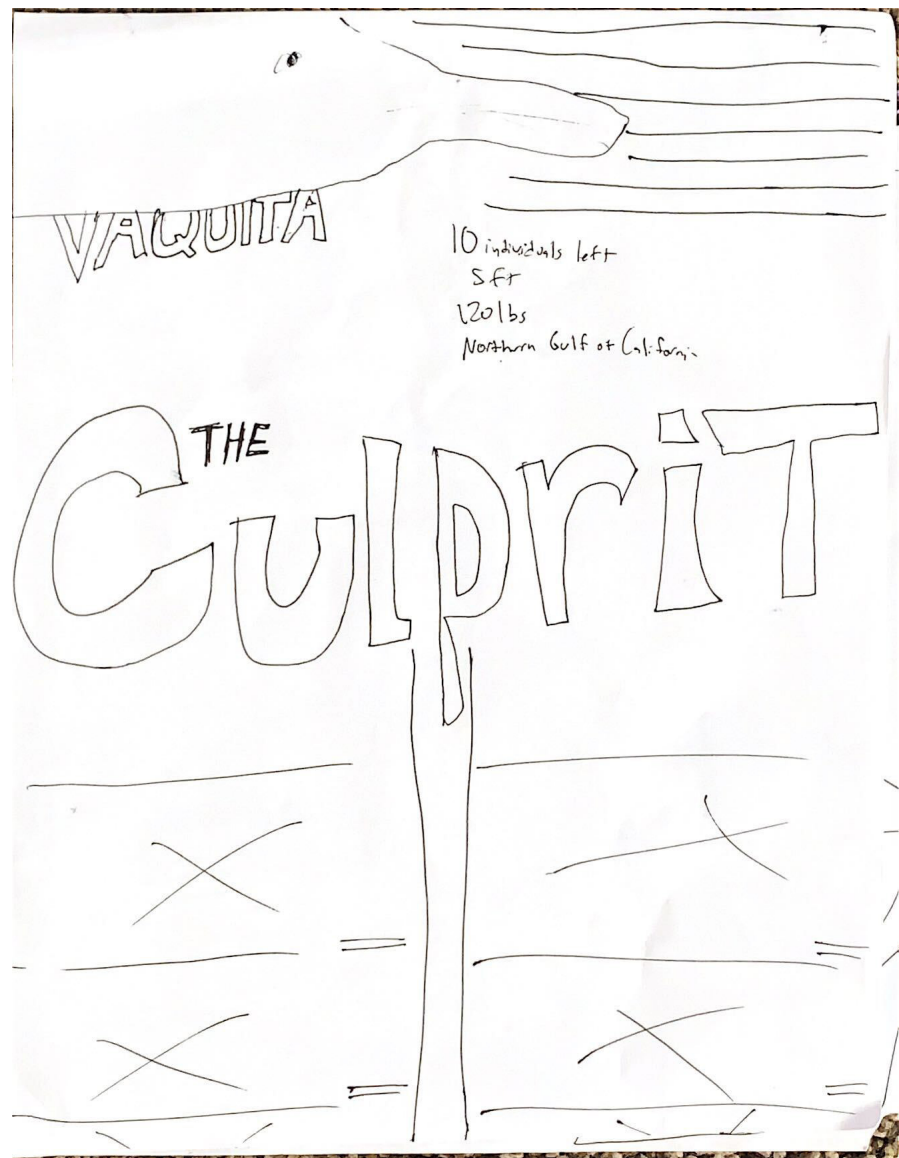 VAQUITA
10 individuals left
5ft
120lbs
Northern Gulf of California
THE
CulpriT